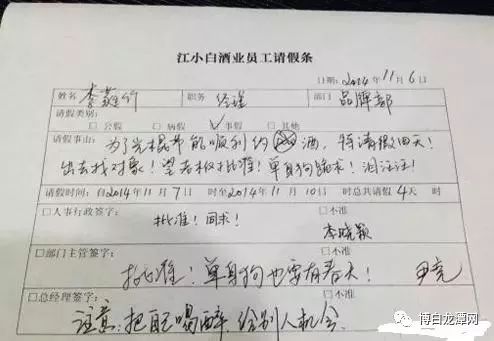 江小白酒业员工请假条
日期:2014年11月6日
姓名 李 竹 职务 经理 部门 品牌部
请假类别:
□公假 □病假 ☑事假 □其他
请假事由:为了光棍节能顺利约 酒,特请假四天!
出去找对象!望老板批准!单身狗跪求!泪汪汪!
请假时间:自2014年11月7日 时至2014年11月10日 时总共请假4天 时
□人事行政签字: □不准
批准!同求!
李晓颖
□部门主管签字: □不准
批准!单身狗也要有春天!
尹亮
□总经理签字: □不准
注意:把自己喝醉,给别人机会.
博白龙潭网